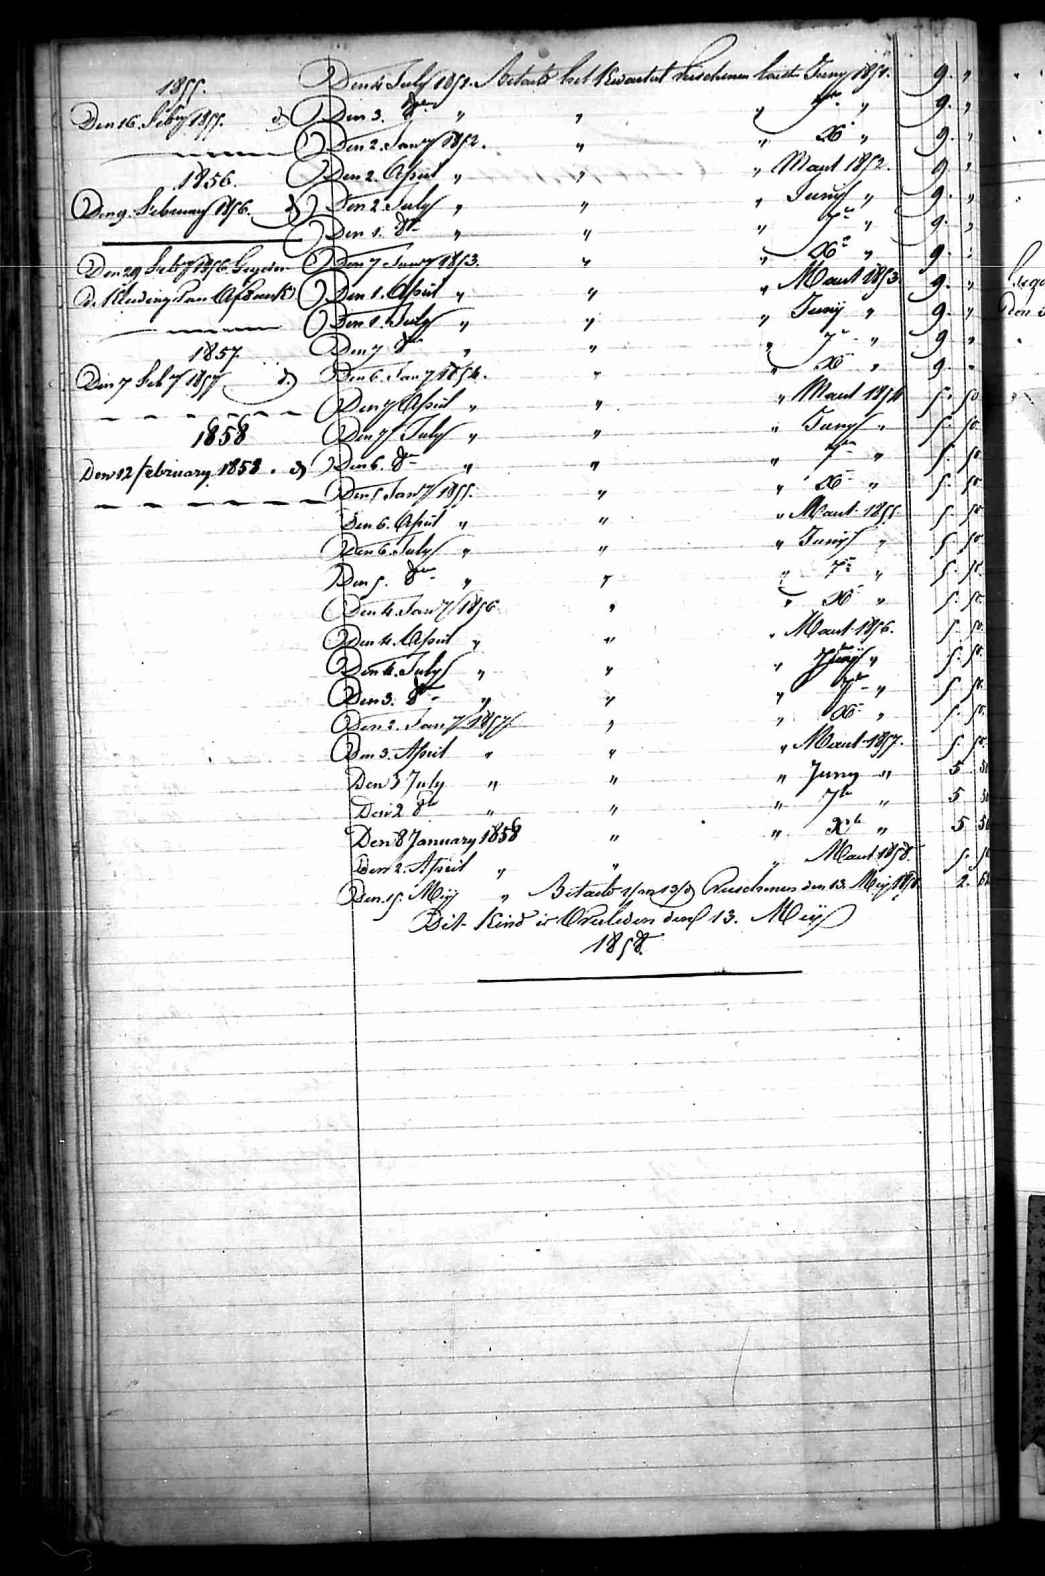 1855.
Den 16. Feby 1855. d)
1856.
Den 9. February 1856. d)
Den 29 Feby 1856.
1857.
Den 7 Feby 1857 d.)
1858
Den 12 february 1858. d)
Den 4 July 1851. Betaald het Kwartaal Verschenen laatst Juny 1851. 9. "
Den 3. 8br " " " 7br " 9. "
Den 2. Jany 1852. " " Xb " 9. "
Den 2. April " " " Maart 1852. 9. "
Den 2. July " " " Junij " 9. "
Den 1. 8br " " " 7br " 9. "
Den 7 Jany 1853. " " Xbr " 9. "
Den 1. April " " " Maart 1853. 9. "
Den 1. July " " " Junij " 9. "
Den 7 8br " " " 7br " 9 "
Den 6. Jany 1854. " " Xb " 9. "
Den 7 April " " " Maart 1854 5. 50
Den 7 July " " " Juny " 5. 50
Den 6. 8br " " " 7br " 5. 50
Den 5 Jany 1855. " " Xb " 5. 50
Den 6. April " " " Maart 1855 5. 50
Den 6. July " " " Junij " 5. 50
Den 5. 8br " " " 7br " 5. 50
Den 4. Jany 1856 " " Xb " 5. 50
Den 4. April " " " Maart 1856. 5. 50
Den 4. July " " " Junij " 5. 50
Den 3. 8br " " " 7br " 5. 50
Den 2. Jany 1857 " " Xb " 5. 50
Den 3. April " " " Maart 1857. 5. 50
Den 3 July " " " Juny " 5 50
Den 2 8br " " " 7br " 5 50
Den 8 January 1858 " " Xbr " 5 50
Den 2. April " " " Maart 1858. 5. 50
Den 15. Meij " Betaald Verschenen den 13. Meij 1858 2.
Dit Kind is Overleden den 13. Meij
1858.